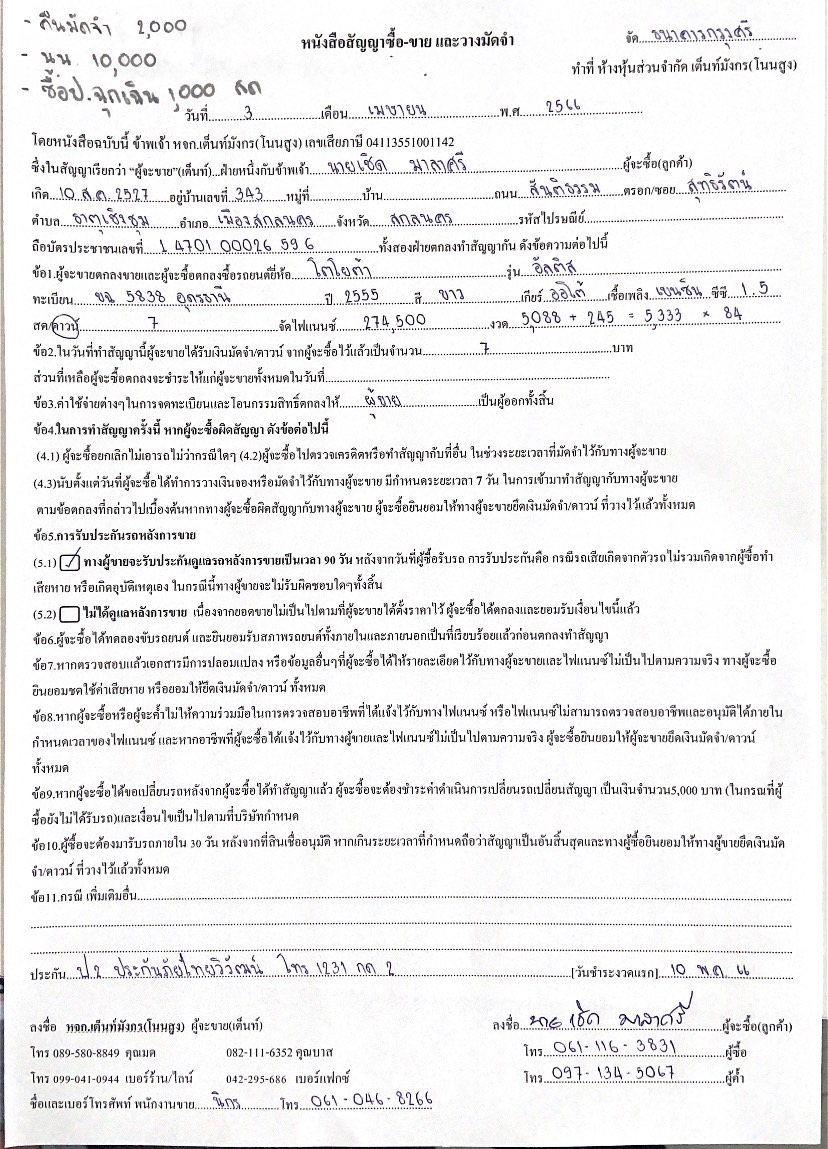 - คืนมัดจำ 2,000
- นน 10,000
- ซื้อป.ฉุกเฉิน 1,000 สด
หนังสือสัญญาซื้อ-ขาย และวางมัดจำ
จัด ธนาคารกรุงศรี
ทำที่ ห้างหุ้นส่วนจำกัด เต็นท์มังกร(โนนสูง)
วันที่ 3 เดือน เมษายน พ.ศ 2566
โดยหนังสือฉบับนี้ ข้าพเจ้า หจก.เต็นท์มังกร(โนนสูง) เลขเสียภาษี 04113551001142
ซึ่งในสัญญาเรียกว่า "ผู้จะขาย"(เต็นท์)...ฝ่ายหนึ่งกับข้าพเจ้า นายเชิด มาลาศรี ผู้จะซื้อ(ลูกค้า)
เกิด 10 ส.ค. 2527 อยู่บ้านเลขที่ 343 หมู่ที่ บ้าน ถนน สันติธรรม ตรอก/ซอย สุทธิรัตน์
ตำบล ธาตุเชิงชุม อำเภอ เมืองสกลนคร จังหวัด สกลนคร รหัสไปรษณีย์
ถือบัตรประชาชนเลขที่ 1 4701 00026 59 6 ทั้งสองฝ่ายตกลงทำสัญญากัน ดังข้อความต่อไปนี้
ข้อ1.ผู้จะขายตกลงขายและผู้จะซื้อตกลงซื้อรถยนต์ยี่ห้อ โตโยต้า รุ่น อัลติส
ทะเบียน ขฉ 5838 อุดรธานี ปี 2555 สี ขาว เกียร์ ออโต้ เชื้อเพลิง เบนซิน ซีซี 1.5
สด/ดาวน์ 7 จัดไฟแนนซ์ 274,500 งวด 5,088 + 245 = 5,333 × 84
ข้อ2.ในวันที่ทำสัญญานี้ผู้จะขายได้รับเงินมัดจำ/ดาวน์ จากผู้จะซื้อไว้แล้วเป็นจำนวน 7 บาท
ส่วนที่เหลือผู้จะซื้อตกลงจะชำระให้แก่ผู้จะขายทั้งหมดในวันที่
ข้อ3.ค่าใช้จ่ายต่างๆในการจดทะเบียนและโอนกรรมสิทธิ์ตกลงให้ ผู้ขาย เป็นผู้ออกทั้งสิ้น
ข้อ4.ในการทำสัญญาครั้งนี้ หากผู้จะซื้อผิดสัญญา ดังข้อต่อไปนี้
(4.1) ผู้จะซื้อยกเลิกไม่เอารถไม่ว่ากรณีใดๆ (4.2)ผู้จะซื้อไปตรวจเครดิตหรือทำสัญญากับที่อื่น ในช่วงระยะเวลาที่มัดจำไว้กับทางผู้จะขาย
(4.3)นับตั้งแต่วันที่ผู้จะซื้อได้ทำการวางเงินจองหรือมัดจำไว้กับทางผู้จะขาย มีกำหนดระยะเวลา 7 วัน ในการเข้ามาทำสัญญากับทางผู้จะขาย
ตามข้อตกลงที่กล่าวไปเบื้องต้นหากทางผู้จะซื้อผิดสัญญากับทางผู้จะขาย ผู้จะซื้อยินยอมให้ทางผู้จะขายยึดเงินมัดจำ/ดาวน์ ที่วางไว้แล้วทั้งหมด
ข้อ5.การรับประกันรถหลังการขาย
(5.1) ทางผู้ขายจะรับประกันดูแลรถหลังการขายเป็นเวลา 90 วัน หลังจากวันที่ผู้ซื้อรับรถ การรับประกันคือ กรณีรถเสียเกิดจากตัวรถไม่รวมเกิดจากผู้ซื้อทำ
เสียหาย หรือเกิดอุบัติเหตุเอง ในกรณีนี้ทางผู้ขายจะไม่รับผิดชอบใดๆทั้งสิ้น
(5.2) ไม่ได้ดูแลหลังการขาย เนื่องจากยอดขายไม่เป็นไปตามที่ผู้จะขายได้ตั้งราคาไว้ ผู้จะซื้อได้ตกลงและยอมรับเงื่อนไขนี้แล้ว
ข้อ6.ผู้จะซื้อได้ทดลองขับรถยนต์ และยินยอมรับสภาพรถยนต์ทั้งภายในและภายนอกเป็นที่เรียบร้อยแล้วก่อนตกลงทำสัญญา
ข้อ7.หากตรวจสอบแล้วเอกสารมีการปลอมแปลง หรือข้อมูลอื่นๆที่ผู้จะซื้อได้ให้รายละเอียดไว้กับทางผู้จะขายและไฟแนนซ์ไม่เป็นไปตามความจริง ทางผู้จะซื้อ
ยินยอมชดใช้ค่าเสียหาย หรือยอมให้ยึดเงินมัดจำ/ดาวน์ ทั้งหมด
ข้อ8.หากผู้จะซื้อหรือผู้จะค้ำไม่ให้ความร่วมมือในการตรวจสอบอาชีพที่ได้แจ้งไว้กับทางไฟแนนซ์ หรือไฟแนนซ์ไม่สามารถตรวจสอบอาชีพและอนุมัติได้ภายใน
กำหนดเวลาของไฟแนนซ์ และหากอาชีพที่ผู้จะซื้อได้แจ้งไว้กับทางผู้ขายและไฟแนนซ์ไม่เป็นไปตามความจริง ผู้จะซื้อยินยอมให้ผู้จะขายยึดเงินมัดจำ/ดาวน์
ทั้งหมด
ข้อ9.หากผู้จะซื้อได้ขอเปลี่ยนรถหลังจากผู้จะซื้อได้ทำสัญญาแล้ว ผู้จะซื้อจะต้องชำระค่าดำเนินการเปลี่ยนรถเปลี่ยนสัญญา เป็นเงินจำนวน5,000 บาท (ในกรณที่ผู้
ซื้อยังไม่ได้รับรถ)และเงื่อนไขเป็นไปตามที่บริษัทกำหนด
ข้อ10.ผู้ซื้อจะต้องมารับรถภายใน 30 วัน หลังจากที่สินเชื่ออนุมัติ หากเกินระยะเวลาที่กำหนดถือว่าสัญญาเป็นอันสิ้นสุดและทางผู้ซื้อยินยอมให้ทางผู้ขายยึดเงินมัด
จำ/ดาวน์ ที่วางไว้แล้วทั้งหมด
ข้อ11.กรณี เพิ่มเติมอื่น
ประกัน ป.2 ประกันภัยไทยวิวัฒน์ โทร 1231 กด 2 [วันชำระงวดแรก] 10 พ.ค. 66
ลงชื่อ หจก.เต็นท์มังกร(โนนสูง) ผู้จะขาย(เต็นท์) ลงชื่อ นาย เชิด มาลาศรี ผู้จะซื้อ(ลูกค้า)
โทร 089-580-8849 คุณมด 082-111-6352 คุณบาส โทร 061-116-3831 ผู้ซื้อ
โทร 099-041-0944 เบอร์ร้าน/ไลน์ 042-295-686 เบอร์แฟกซ์ โทร 097-134-5067 ผู้ค้ำ
ชื่อและเบอร์โทรศัพท์ พนักงานขาย นิกร โทร 061-046-8266